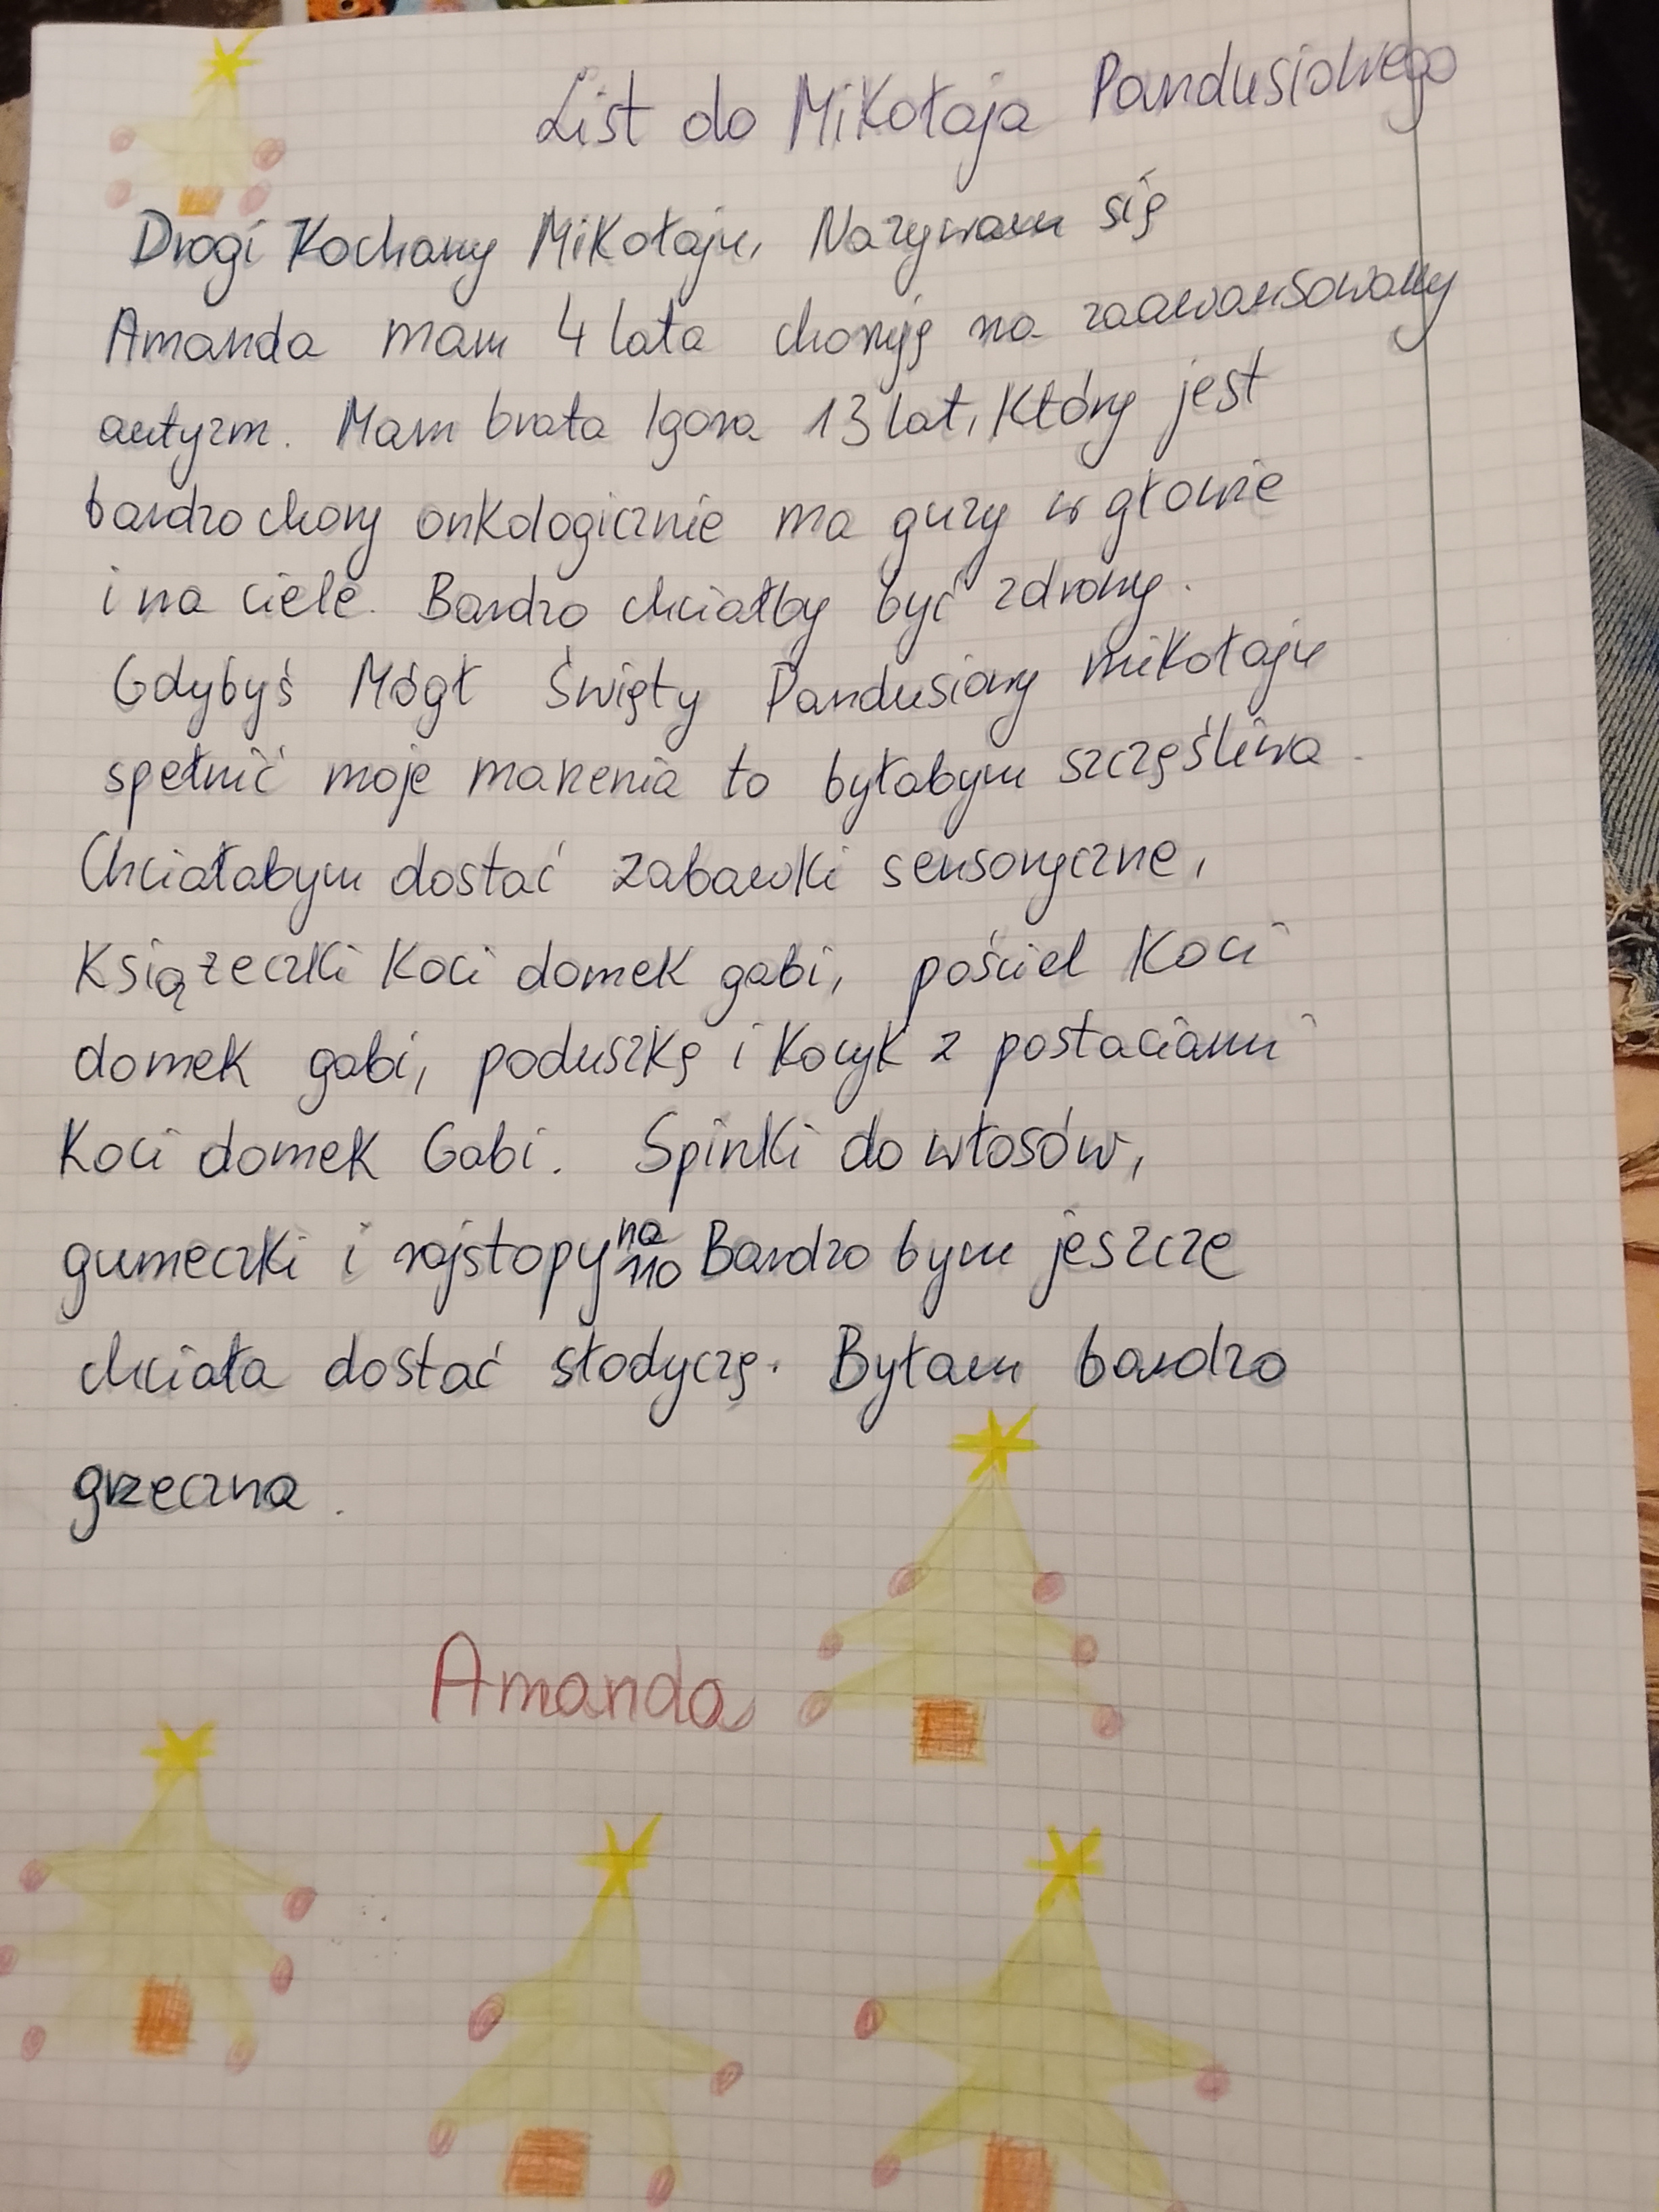 List do Mikołaja Pandusiowego
Drogi Kochany Mikołaju, Nazywam się
Amanda mam 4 lata choruję na zaawansowany
autyzm. Mam brata Igora 13 lat, który jest
bardzo chory onkologicznie ma guzy w głowie
i na ciele. Bardzo chciałby być zdrowy.
Gdybyś Mógł Święty Pandusiowy mikołaju
spełnić moje marzenia to byłabym szczęśliwa.
Chciałabym dostać zabawki sensoryczne,
Książeczki Koci domek gabi, pościel Koci
domek gabi, poduszkę i Kocyk z postaciami
Koci domek Gabi. Spinki do włosów,
gumeczki i rajstopy na 110 Bardzo bym jeszcze
chciała dostać słodyczę. Byłam bardzo
grzeczna.
Amanda